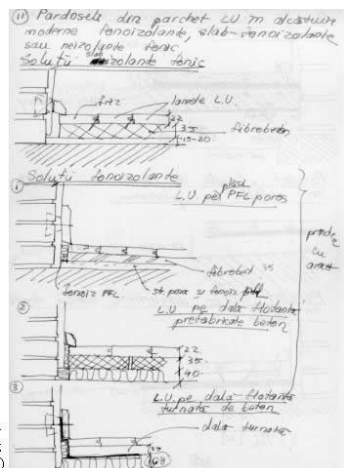 11) Pardoseli din parchet LU în alcătuire
moderne fonoizolante, slab-fonoizolante
sau neizolante fonic
Soluții slab izolante fonic
friz
lamele L.U.
22
35
15-20
fibrobeton
1
Soluții fonoizolante
L.U. pe plăci PFL poros
fibrobet 35
fonoiz PFL
L.U. pe dala flotantă
prefabricate beton
2
22
35
40
3
L.U. pe dala flotantă
turnată de beton
dala turnată